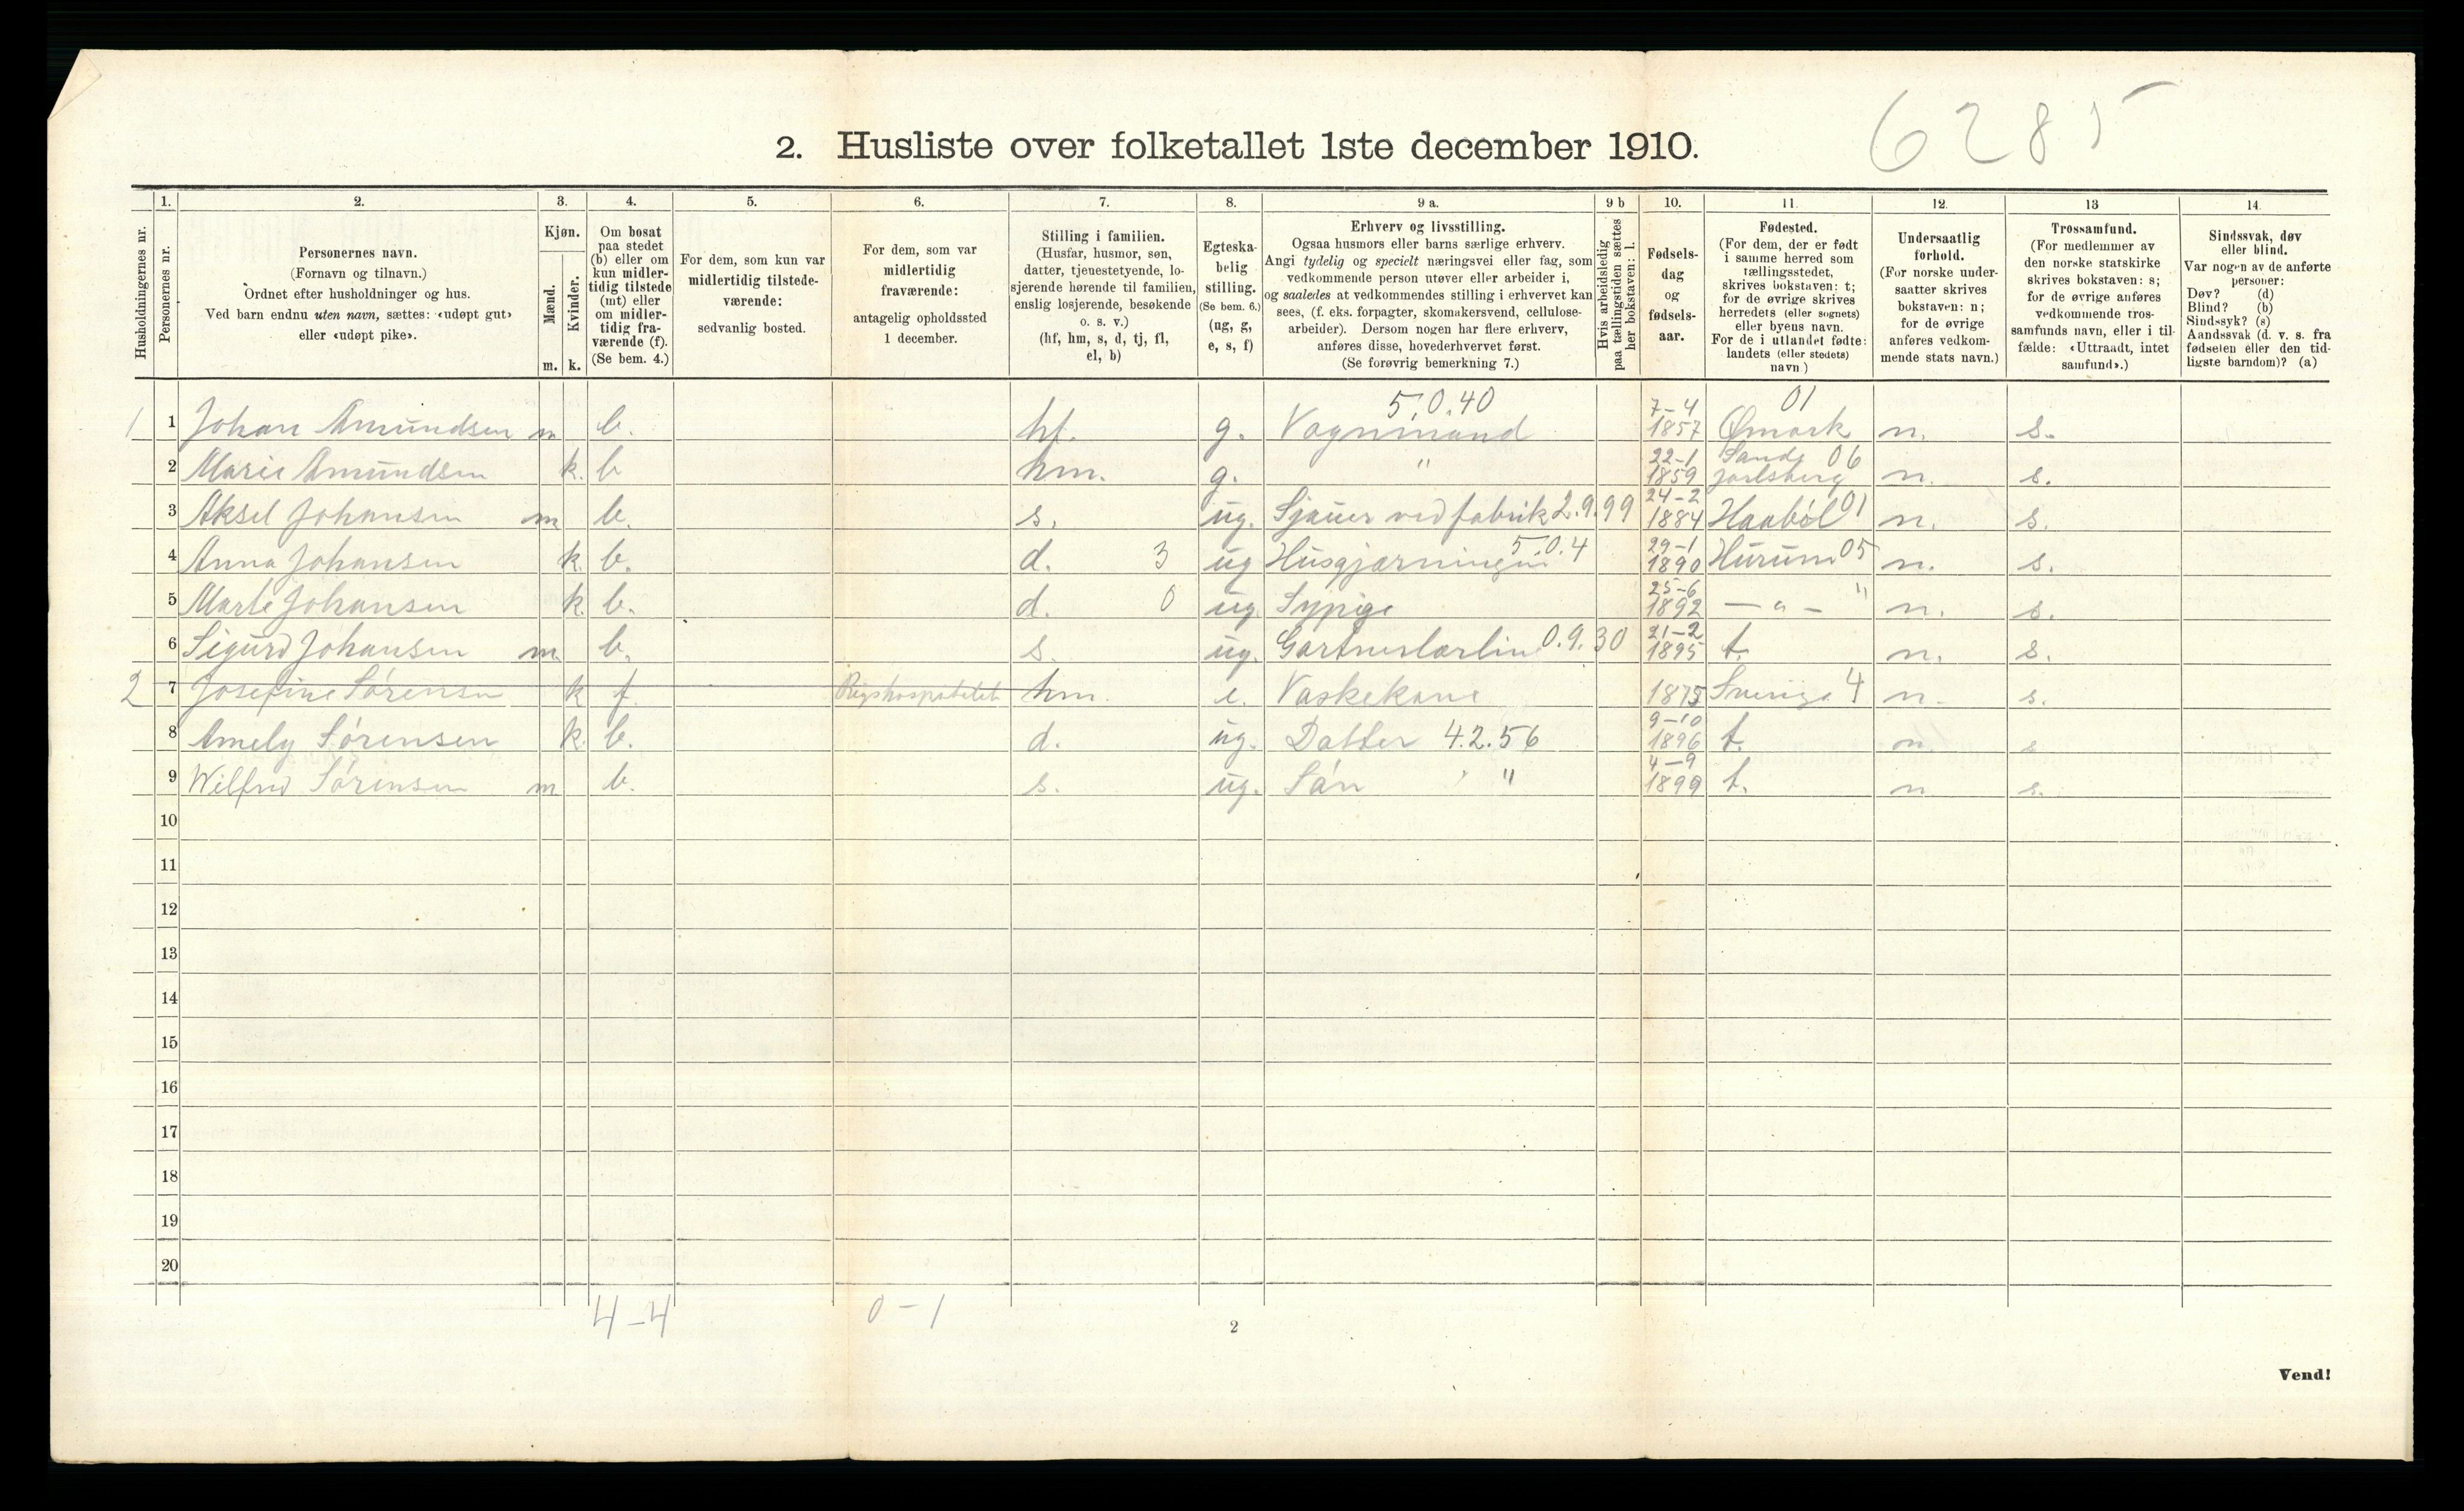 6285
2. Husliste over folketallet 1ste december 1910.
1. 2. 3. 4. 5. 6. 7. 8. 9 a. 9 b 10. 11. 12. 13 14.
Husholdningernes nr.
Personernes nr.
Personernes navn.
(Fornavn og tilnavn.)
Ordnet efter husholdninger og hus.
Ved barn endnu uten navn, sættes: «udøpt gut»
eller «udøpt pike».
Kjøn.
Mænd.
Kvinder.
m. k.
Om bosat
paa stedet
(b) eller om
kun midler-
tidig tilstede
(mt) eller
om midler-
tidig fra-
værende (f).
(Se bem. 4.)
For dem, som kun var
midlertidig tilstede-
værende:
sedvanlig bosted.
For dem, som var
midlertidig
fraværende:
antagelig opholdssted
1 december.
Stilling i familien.
(Husfar, husmor, søn,
datter, tjenestetyende, lo-
sjerende hørende til familien,
enslig losjerende, besøkende
o. s. v.)
(hf, hm, s, d, tj, fl,
el, b)
Egteska-
belig
stilling.
(Se bem. 6.)
(ug, g,
e, s, f)
Erhverv og livsstilling.
Ogsaa husmors eller barns særlige erhverv.
Angi tydelig og specielt næringsvei eller fag, som
vedkommende person utøver eller arbeider i,
og saaledes at vedkommendes stilling i erhvervet kan
sees, (f. eks. forpagter, skomakersvend, cellulose-
arbeider). Dersom nogen har flere erhverv,
anføres disse, hovederhvervet først.
(Se forøvrig bemerkning 7.)
Hvis arbeidsledig
paa tællingstiden sættes
her bokstaven: l.
Fødsels-
dag
og
fødsels-
aar.
Fødested.
(For dem, der er født
i samme herred som
tællingsstedet,
skrives bokstaven: t;
for de øvrige skrives
herredets (eller sognets)
eller byens navn.
For de i utlandet fødte:
landets (eller stedets)
navn.)
Undersaatlig
forhold.
(For norske under-
saatter skrives
bokstaven: n;
for de øvrige
anføres vedkom-
mende stats navn.)
Trossamfund.
(For medlemmer av
den norske statskirke
skrives bokstaven: s;
for de øvrige anføres
vedkommende tros-
samfunds navn, eller i til-
fælde: «Uttraadt, intet
samfund».)
Sindssvak, døv
eller blind.
Var nogen av de anførte
personer:
Døv? (d)
Blind? (b)
Sindssyk? (s)
Aandssvak (d. v. s. fra
fødselen eller den tid-
ligste barndom)? (a)
1 1 Johan Amundsen m b. hf. g. Vognmand 5.0.40 7-4 1857 Ømark 01 n. s.
2 Marie Amundsen k. b hm. g. " 22-1 1859 Sande Jarlsberg 06 n. s.
3 Aksel Johansen m b. s. ug. Sjauer ved fabrik 2.9.99 24-2 1884 Haabøl 01 n. s.
4 Anna Johansen k. b. d. 3 ug Husgjærningen 5.0.4 29-1 1890 Hurum 05 n. s.
5 Marte Johansen k. b. d. 0 ug. Sypige 25-6 1892 — " — " n. s.
6 Sigurd Johansen m. b. s. ug. Gartnerlærlin 0.9.30 21-2 1895 t. n. s.
2 7 Josefine Sørensen k f. Rigshospitalet hm. e. Vaskekone 1875 Sverige 4 n. s.
8 Amely Sørensen k. b. d. ug. Datter 4.2.56 9-10 1896 t. n. s
9 Wilfred Sørensen m b. s. ug. Søn " 4-9 1899 t. n s.
10
11
12
13
14
15
16
17
18
19
20
4-4 0-1
2
Vend!